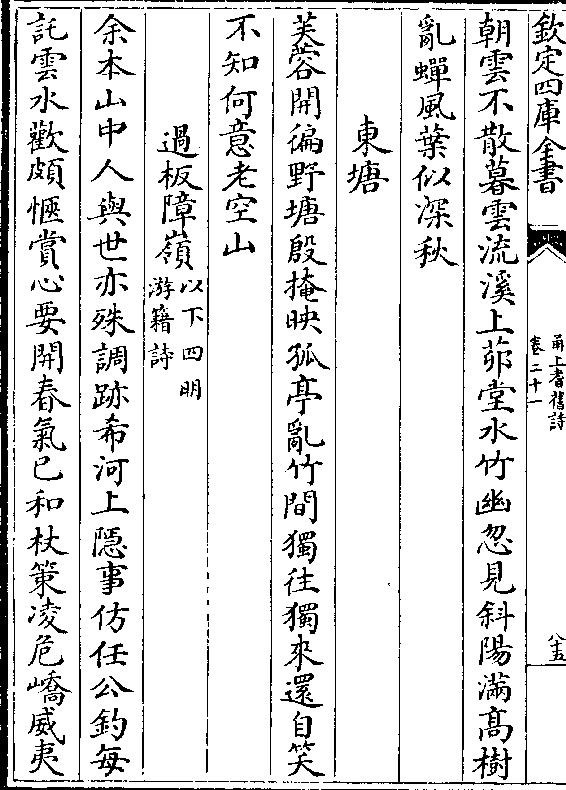 欽定四庫全書
甬上耆舊詩
卷二十一
八十五
朝雲不散暮雲流溪上茆堂水竹幽忽見斜陽滿高樹
亂蟬風葉似深秋
東塘
芙蓉開徧野塘殷掩映孤亭亂竹間獨往獨來還自笑
不知何意老空山
過板障嶺以下四明
游籍詩
余本山中人與世亦殊調跡希河上隱事仿任公釣每
託雲水歡頗愜賞心要開春氣已和杖策凌危嶠威夷